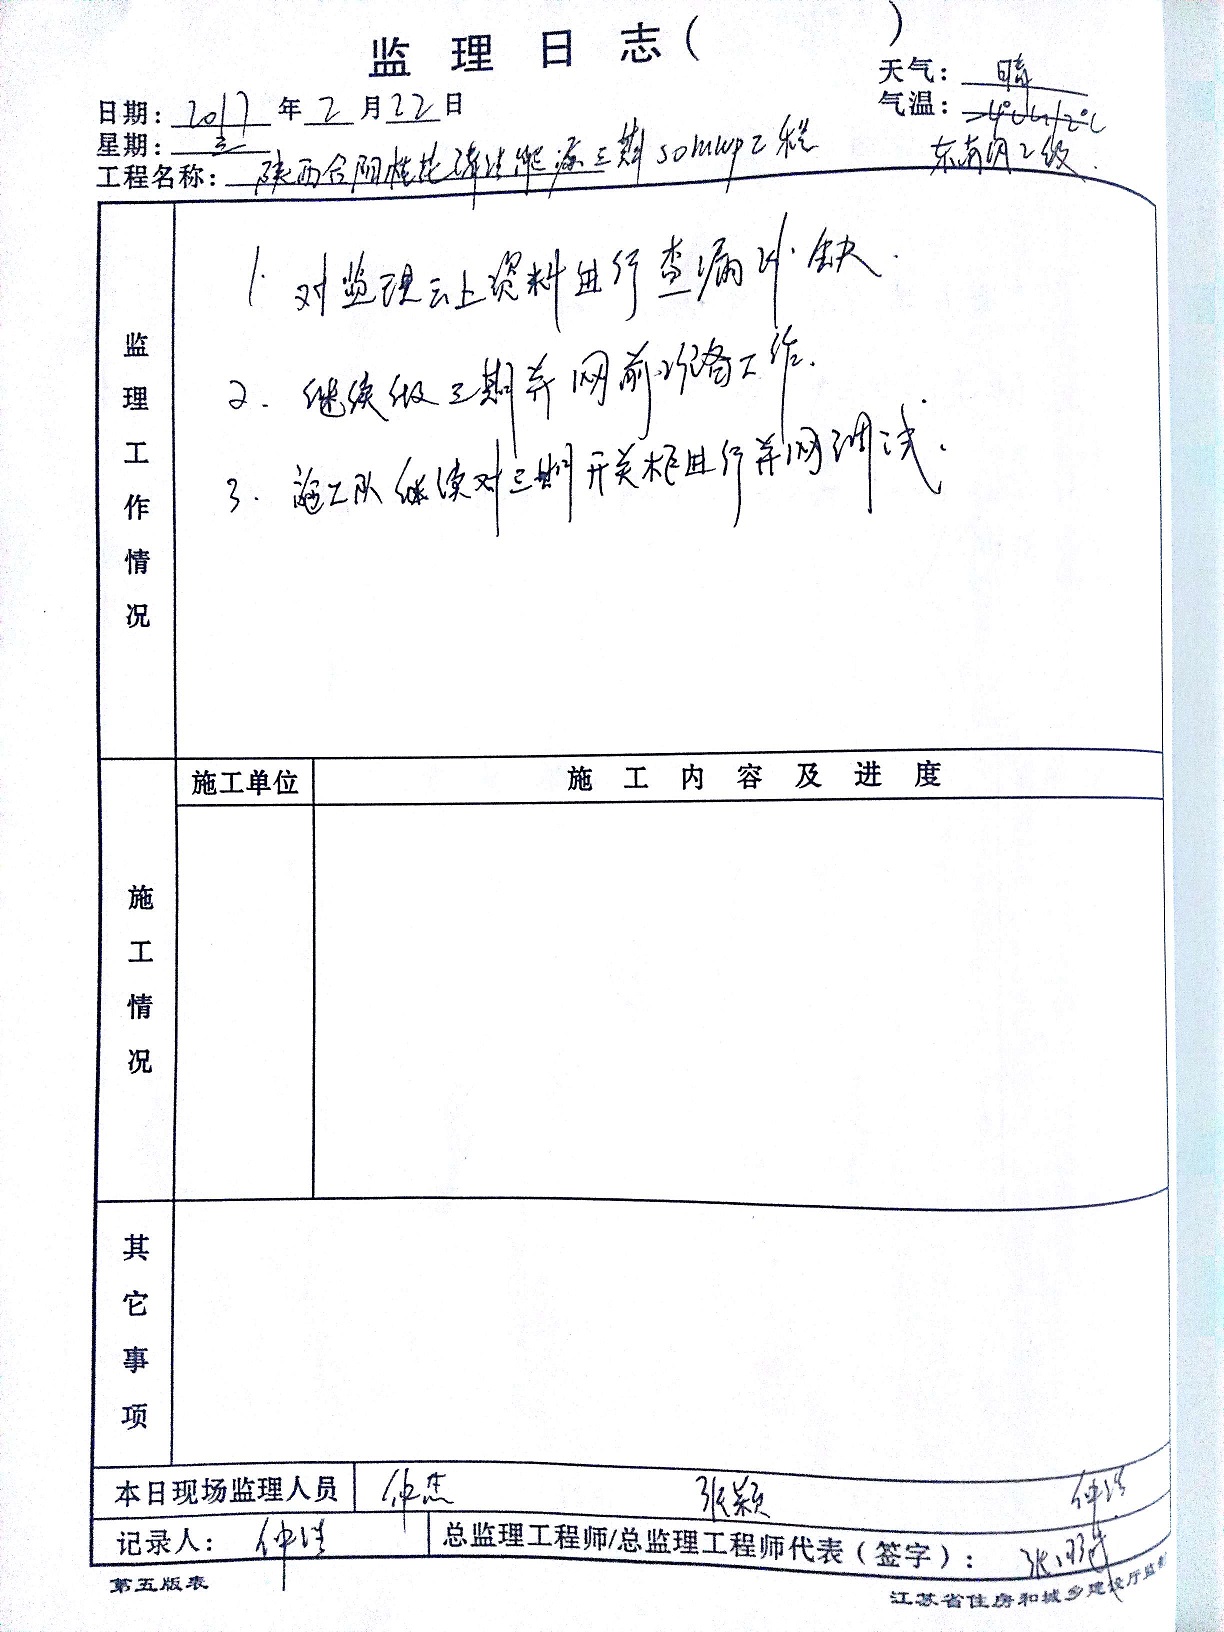 监理日志( )
天气: 晴
日期: 2017 年 2 月 22 日
气温: -4℃~12℃
星期: 三
东南风2级.
工程名称: 陕西合阳桂花 清洁能源三期50MWP工程
1. 对监理云上资料进行查漏补缺.
2. 继续做三期并网前准备工作.
3. 施工队继续对三期开关柜进行并网调试.
监理工作情况
施工单位
施工内容及进度
施工情况
其它事项
本日现场监理人员 仲杰 张颖 仲浩
记录人: 仲浩
总监理工程师/总监理工程师代表(签字): 张
第五版表
江苏省住房和城乡建设厅监制